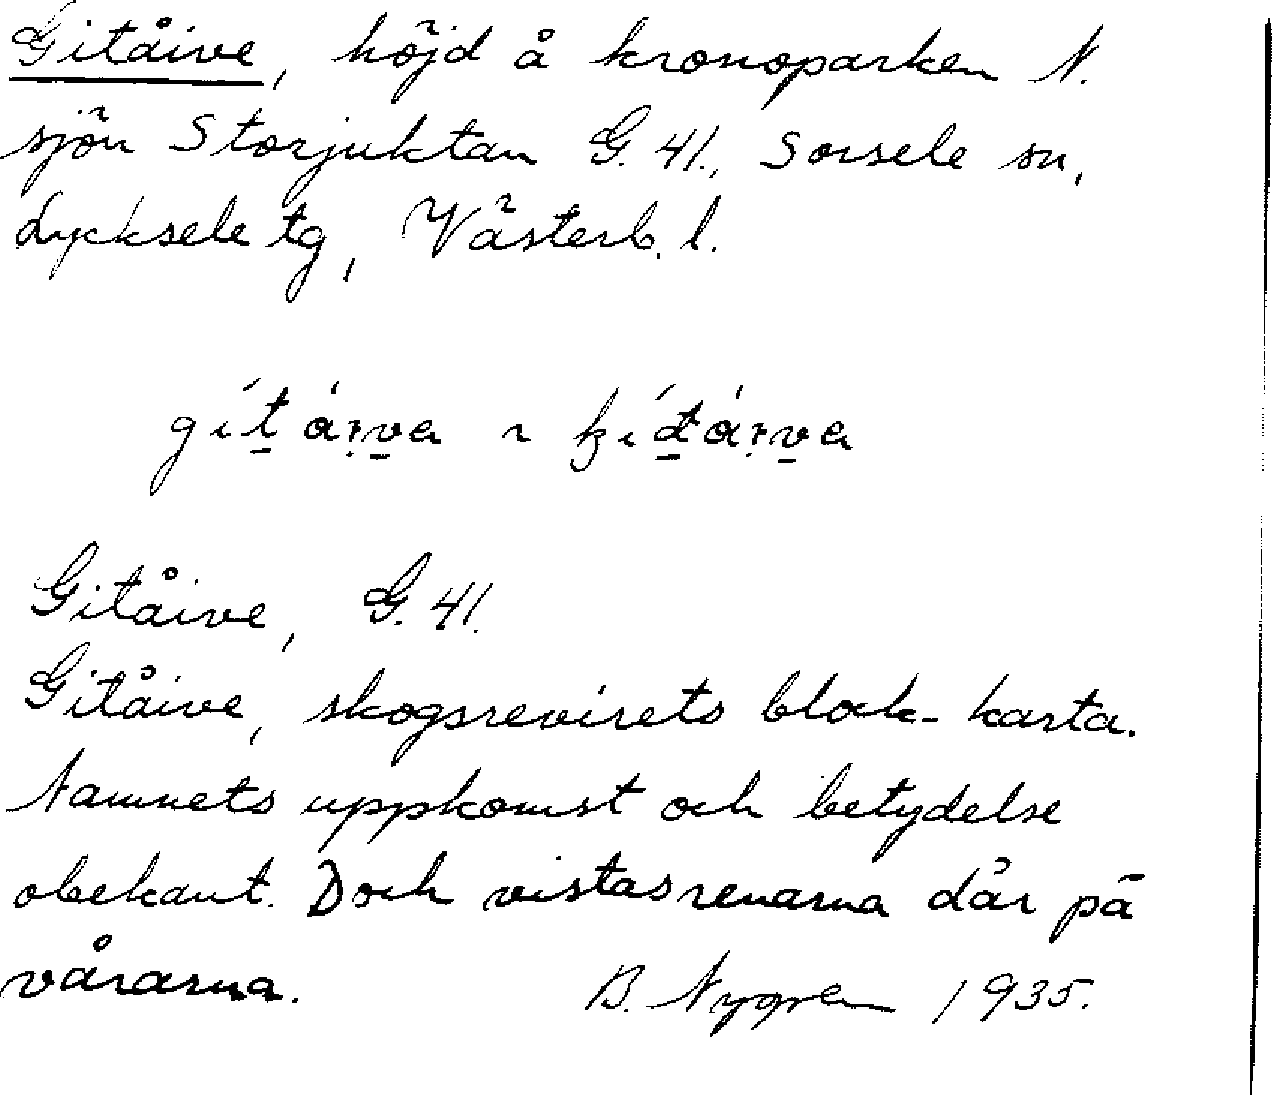 Gitåive, höjd å kronoparken N.
sjön Storjuktan G. 41., Sorsele sn,
Lycksele tg, Västerb. l.
Gitåive, G. 41.
Gitåive, skogsrevirets block-karta.
Namnets uppkomst och betydelse
obekant. Doch vistas renarna där på
vårarna. B. Nygren 1935.